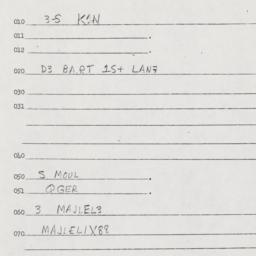 010 3-5 KIN
011 .
012 .
020 D3 BART 1St LANE
030
031
040
050 S MOUL .
051 OGER .
060 3 MAJIEL3
070 MAJIELIX89